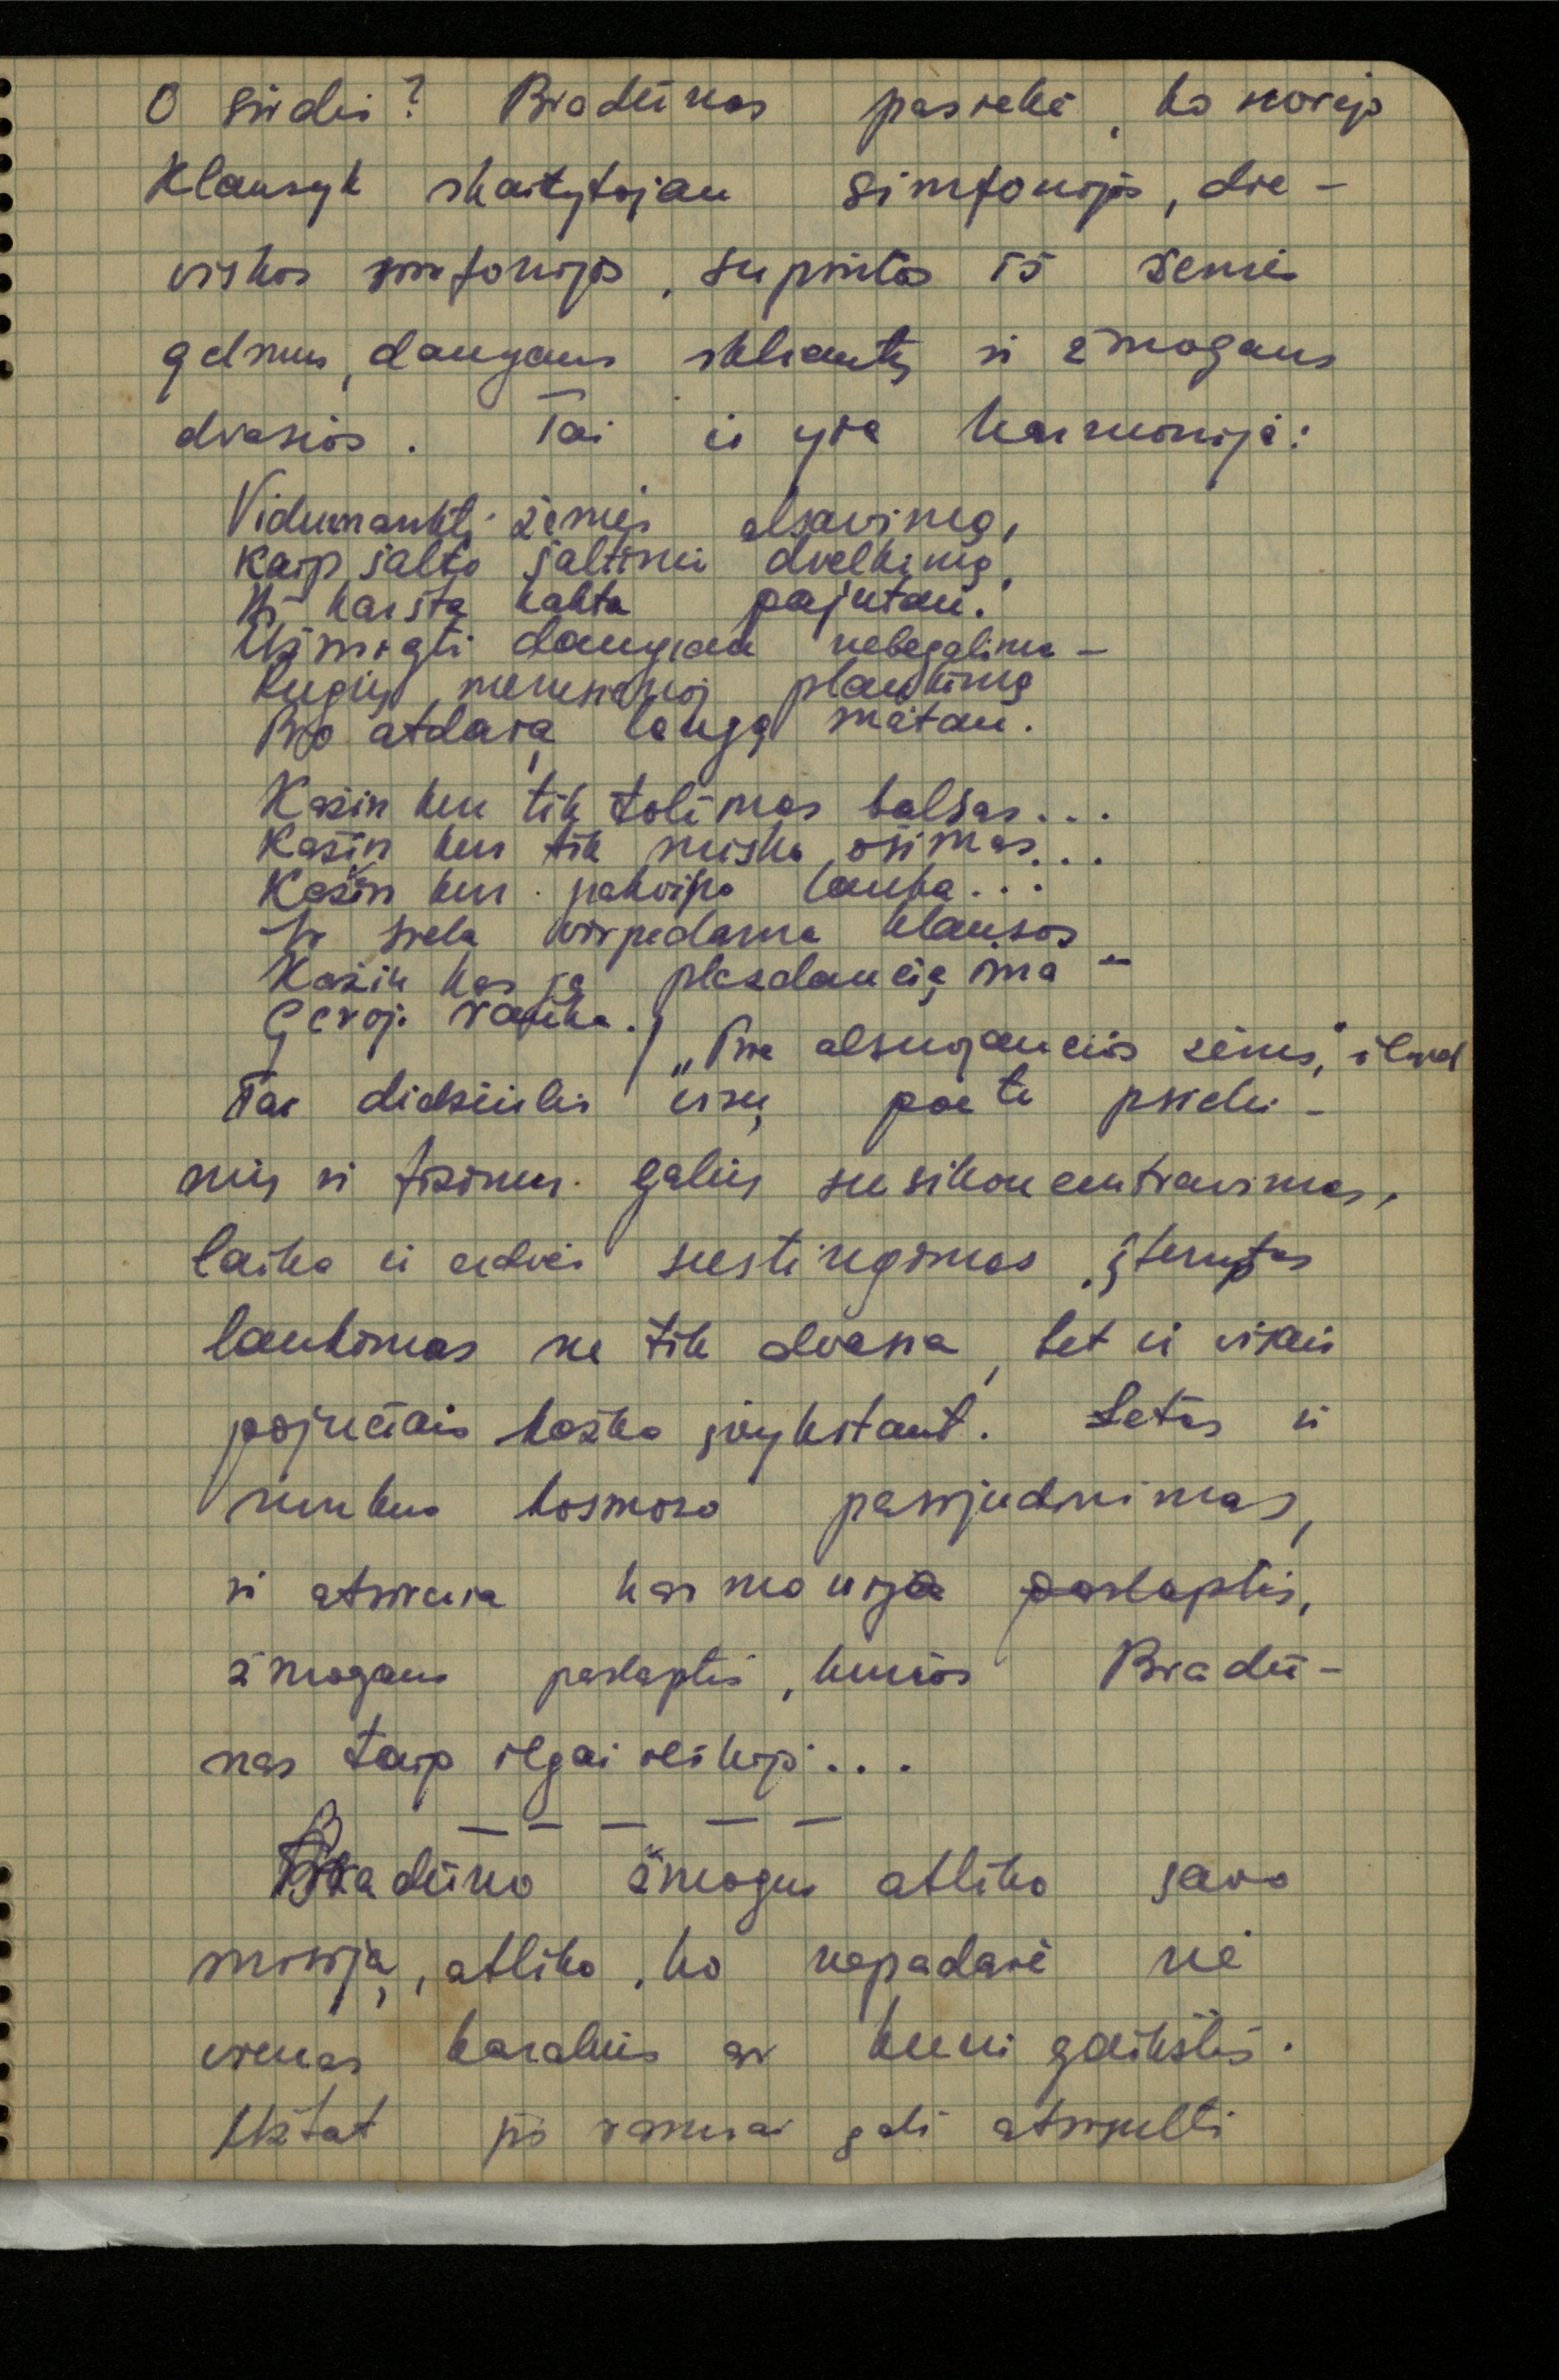 O širdis? Bradūnas pasiekė, ko norėjo
Klausyk skaitytojau simfonijos, die-
viškos simfonijos, supintos iš žemės
gelmių, dangaus skliautų ir žmogaus
dvasios. Tai ir yra harmonija:
Vidurnaktį žemės alsavimą,
Kaip šalto šaltinio dvelkimą,
Aš karšta kakta pajutau.
Užmigti daugiau nebegalima –
Rugių mėnesienoj plaukimą
Pro atdarą langą matau.
Kažin kur tik tolimas balsas...
Kažin kur tik miško ošimas...
Kažin kur pakvipo lauka...
Ir siela virpėdama klausos –
Kažin kas ją plazdančią ima –
Geroji ranka. / „Prie alsuojančios žemės,"
Tai didžiulis visų poeto psichi-
nių ir fizinių galių susikoncentravimas,
laiko ir erdvės sustingimas, įtemptas
laukimas ne tik dvasia, bet ir visais
pojūčiais kažko įvykstant. Lėtas ir
sunkus kosmoso pasijudinimas,
ir atsiveria harmonija paslaptis,
žmogaus paslaptis, kurios Bradū-
nas taip ilgai ieškojo....
— — — — —
Bradūno žmogus atliko savo
misiją, atliko, ko nepadarė nė
vienas karalius ar kunigaikštis.
Užtat jis ramiai gali atsigulti